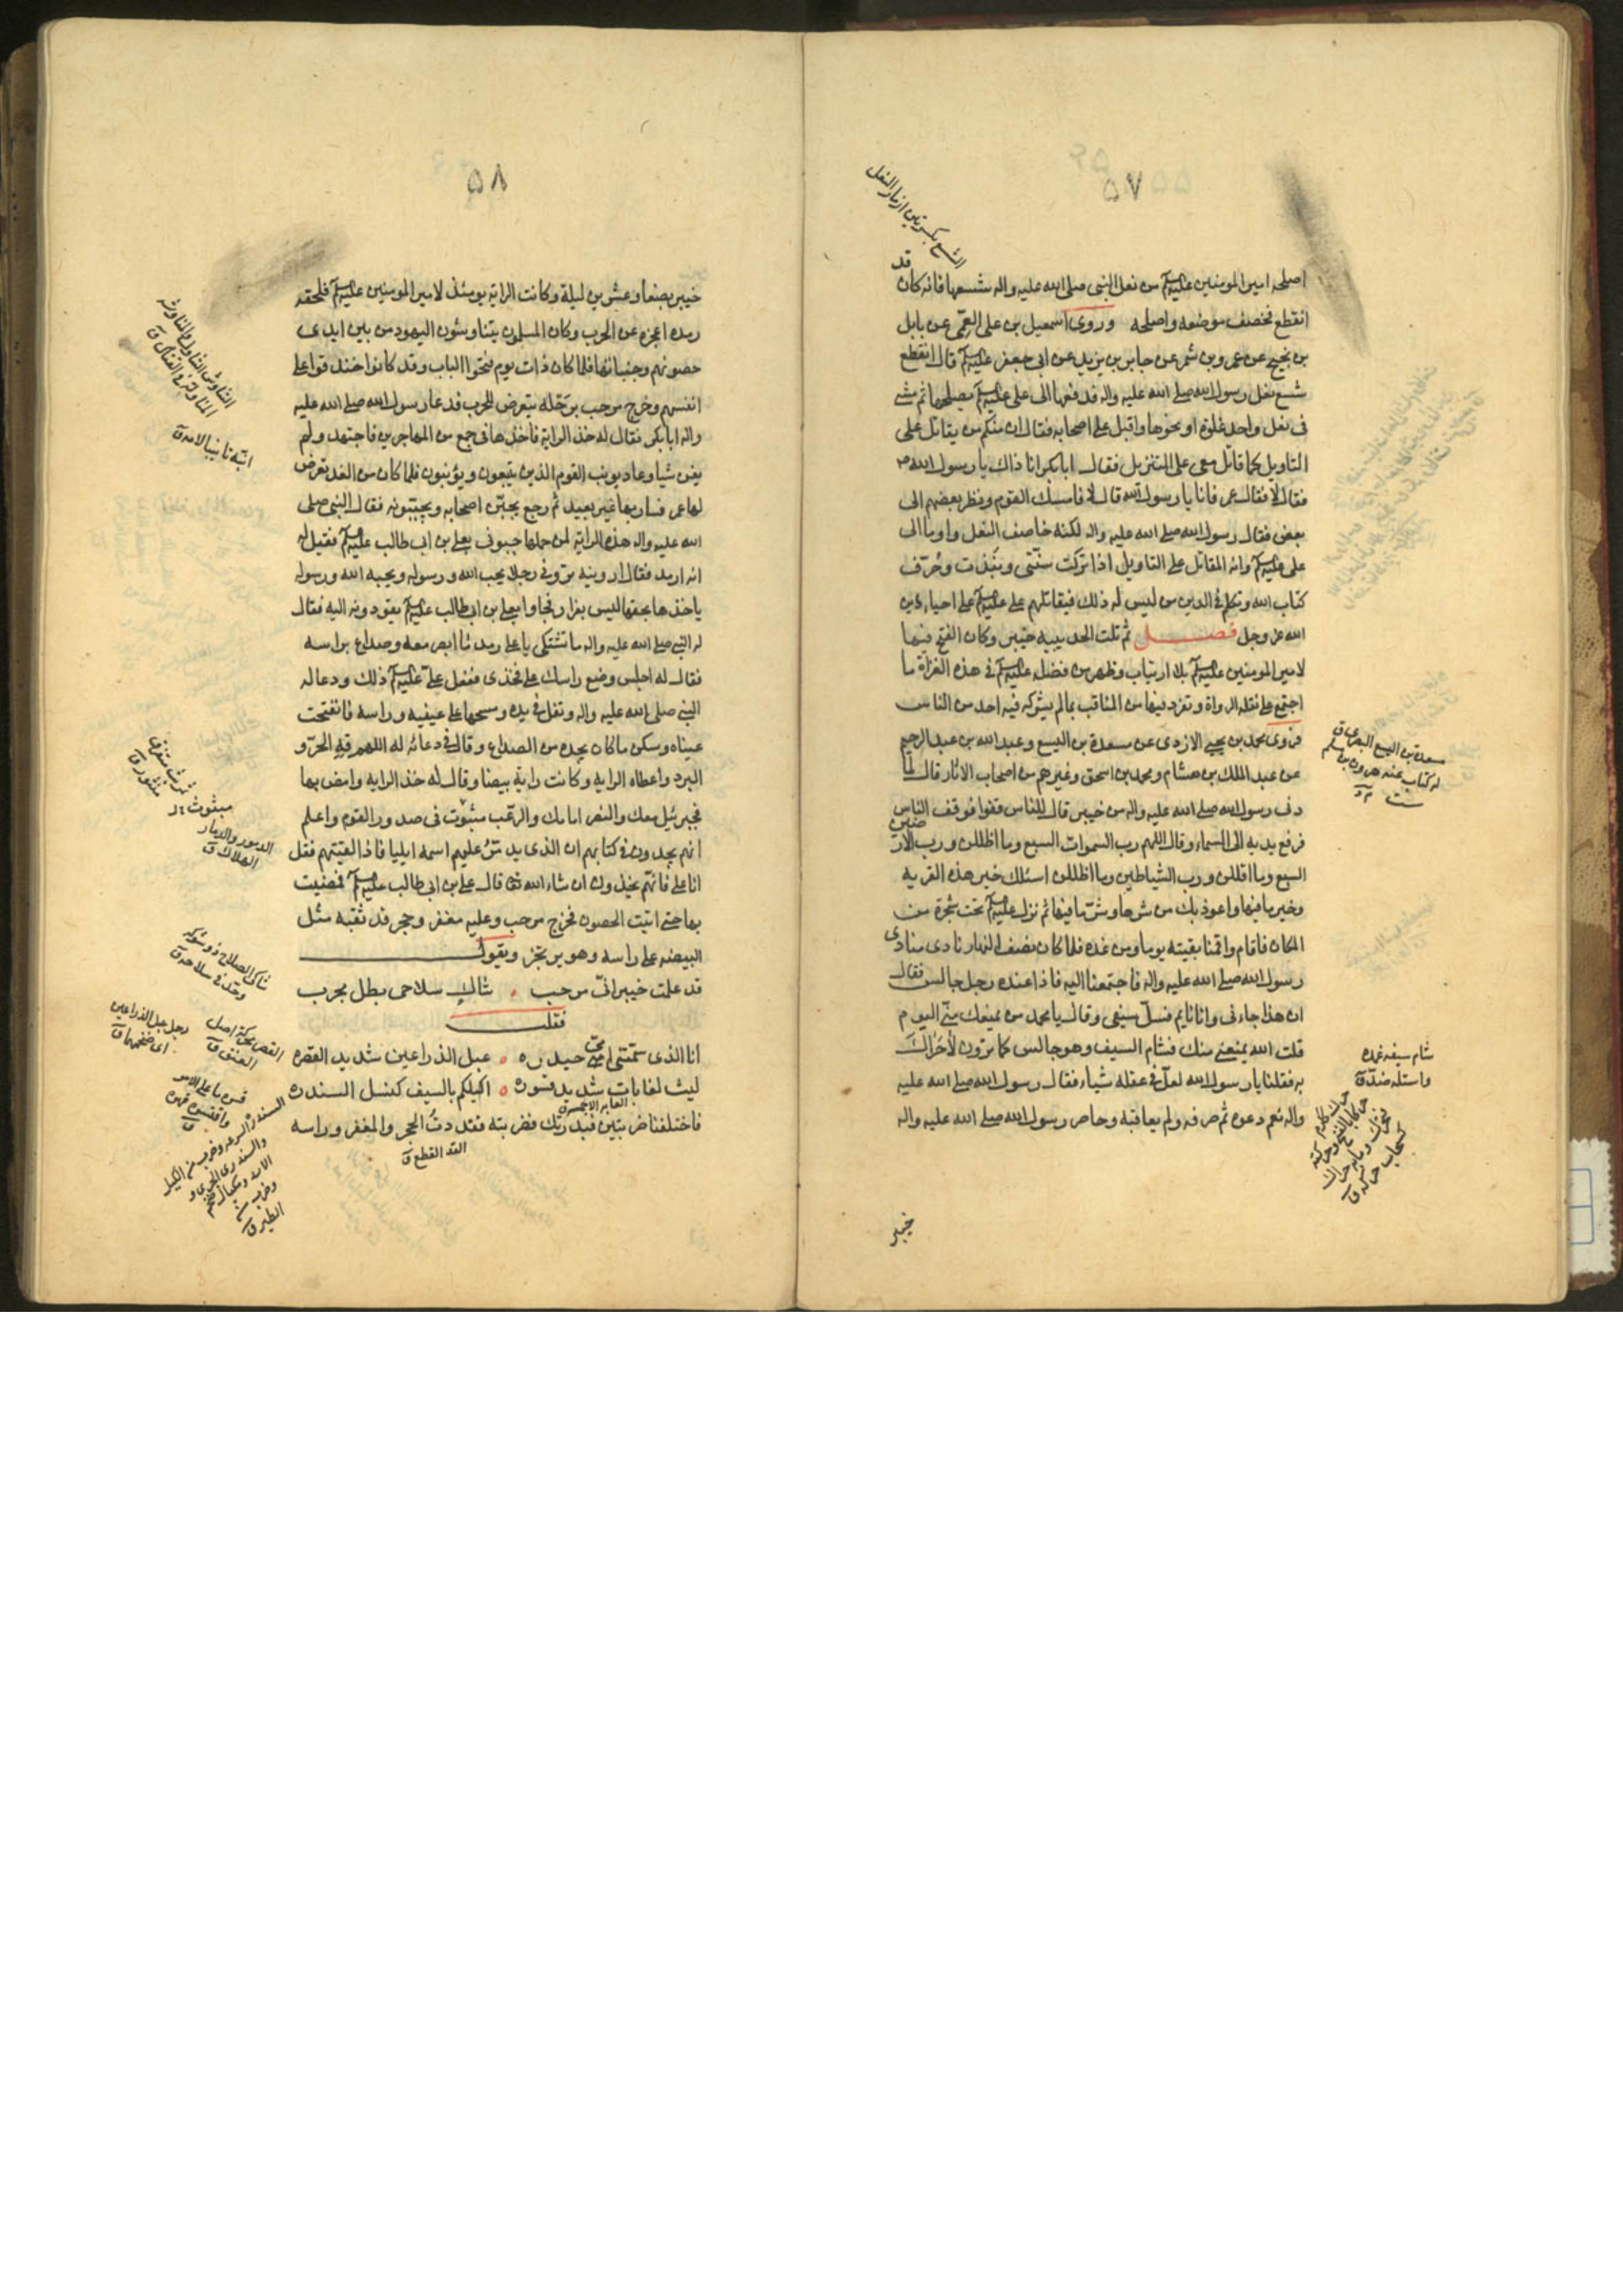 ٥٧
الشسع بكسرتين ازمار النعل
قد
اصلحه امير المومنين عليه السلم من نعل النبى صلى الله عليه واله شسعها فانه كان
انقطع فخصف موضعه واصلحه وروى اسمعيل بن على العمى عن نابل
بن نجيح عن عمرو بن شمر عن جابر بن يزيد عن ابى جعفر عليه السلم قال انقطع
شسع نعل رسول الله صلى الله عليه واله فدفعها الى على عليه السلم يصلحها ثم مشى
فى نعل واحد غلوة او نحوها واقبل على اصحابه فقال ان منكم من يقاتل على
التاويل كما قاتل معى على التنزيل فقال ابا بكر انا ذاك يا رسول الله ص
فقال لا فقال عمر فانا يا رسول الله قال لا فامسك القوم ونظر بعضهم الى
بعض فقال رسول الله صلى الله عليه واله لكنه خاصف النعل واوما الى
على عليه السلم وانه المقاتل على التاويل اذا تركت سنتى ونبذت وحُرّف
كتاب الله وتكلم فى الدين من ليس له ذلك فيقاتلهم على عليه السلم على احياء دين
الله عز وجل فصل ثم تلت الحديبيه خيبر وكان الفتح فيها
لامير المومنين عليه السلم بلا ارتياب وظهر من فضله عليه السلم فى هذه الغزاة ما
اجتمع على نقله الرواة وتفرد فيها من المناقب بما لم يشركه فيه احد من الناس
فروى محمد بن يحيى الازدى عن مسعدة بن اليسع وعبد الله بن عبد الرحيم
عن عبد الملك بن هشام ومحمد بن اسحق وغيرهم من اصحاب الاثار قال لما
دنى رسول الله صلى الله عليه واله من خيبر قال للناس قفوا فوقف الناس
فرفع يديه الى السماء وقال اللهم رب السموات السبع وما اظللن ورب الارضين
السبع وما اقللن ورب الشياطين وما اظللن اسئلك خير هذه القريه
وخير ما فيها واعوذ بك من شرها وشر ما فيها ثم نزل عليه السلم تحت شجرة من
المكان فاقام واقمنا بقيته يوما ومن غده فلما كان نصف النهار نادى منادى
رسول الله صلى الله عليه واله فاجتمعنا اليه فاذا عنده رجل جالس فقال
ان هذا جاءنى وانا نايم فسلّ سيفى وقال يا محمد من يمنعك منى اليوم
قلت الله يمنعنى منك فشام السيف وهو جالس كما ترون لا حَراك
به فقلنا يا رسول الله لعل فى عقله شياء فقال رسول الله صلى الله عليه
واله نعم دعوه ثم صرفه ولم يعاقبه وحاصر رسول الله صلى الله عليه واله
خيبر
مسعدة بن اليسع البصرى ق
له كتاب عنه هرون بن مسلم
شام سيفه غمده
واستله ضد ق
٥٨
خيبر بضعا وعشرين ليلة وكانت الراية يومئذ لامير المومنين عليه السلم فلحقه
رمده اعجزه عن الحرب وكان المسلمون يتناوشون اليهود من بين ايدى
حصونهم وجنباتها فلما كان ذات يوم فتحوا الباب وقد كانوا خندقوا على
انفسهم وخرج مرحب برَجْله يتعرض للحرب فدعا رسول الله صلى الله عليه
واله ابا بكر فقال له خذ الراية فاخذها فى جمع من المهاجرين فاجتهد ولم
يغن شيا وعاد يونب القوم الذين يتبعون ويؤنبون فلما كان من الغد تعرض
لها عمر فسار بها غير بعيد ثم رجع يجبن اصحابه ويجبنونه فقال النبى صلى
الله عليه واله هذه الراية لمن حملها جيبونى بعلى بن ابى طالب عليه السلم فقيل له
انه ارمد فقال ارونيه ترونى رجلا يحب الله ورسوله ويحبه الله ورسوله
ياخذها بحقها ليس بفرار فجاوا بعلى بن ابى طالب عليه السلم يقودونه اليه فقال
له النبى صلى الله عليه واله ما تشتكى يا على رمد ما ابصر معه وصداع براسه
فقال له اجلس وضع راسك على فخذى ففعل على عليه السلم ذلك ودعا له
النبى صلى الله عليه واله وتفل فى يده ومسحها على عينيه وراسه فانفتحت
عيناه وسكن ما كان يجده من الصداع وقال فى دعائه له اللهم قِهِ الحرّ و
البرد واعطاه الراية وكانت راية بيضا وقال له خذ الراية وامض بها
فجبرئيل معك والنصر امامك والرعب مبثوث فى صدور القوم واعلم
انهم يجدون فى كتابهم ان الذى يدمّر عليهم اسمه ايليا فاذا لقيتهم فقل
انا على فانهم يخذلون ان شاء الله تعالى قال على بن ابى طالب عليه السلم فمضيت
بها حتى اتيت الحصون فخرج مرحب وعليه مغفر وحجر قد ثقبه مثل
البيضه على راسه وهو يرتجز ويقول
قد علمت خيبر انى مرحب شاك سلاحى بطل مجرب
فقلت
انا الذى سمتنى امى حيدره عبل الذراعين شديد القصره
ليث لغابات شديد قسوره اكيلكم بالسيف كيل السندره
فاختلفنا ضربتين فبدرتك فضربته فقددتُ الحجر والمغفر وراسه
القد القطع ق
التناوش التناول
انبه تانيبا لامه ق
مبثوث
الدمور والدمار
الهلاك ق
شاك السلاح ذو شوكة
وحد فى سلاحه ق
رجل عبل الذراعين
اى ضخمهما ق
القصر محركة اصل
العنق ق